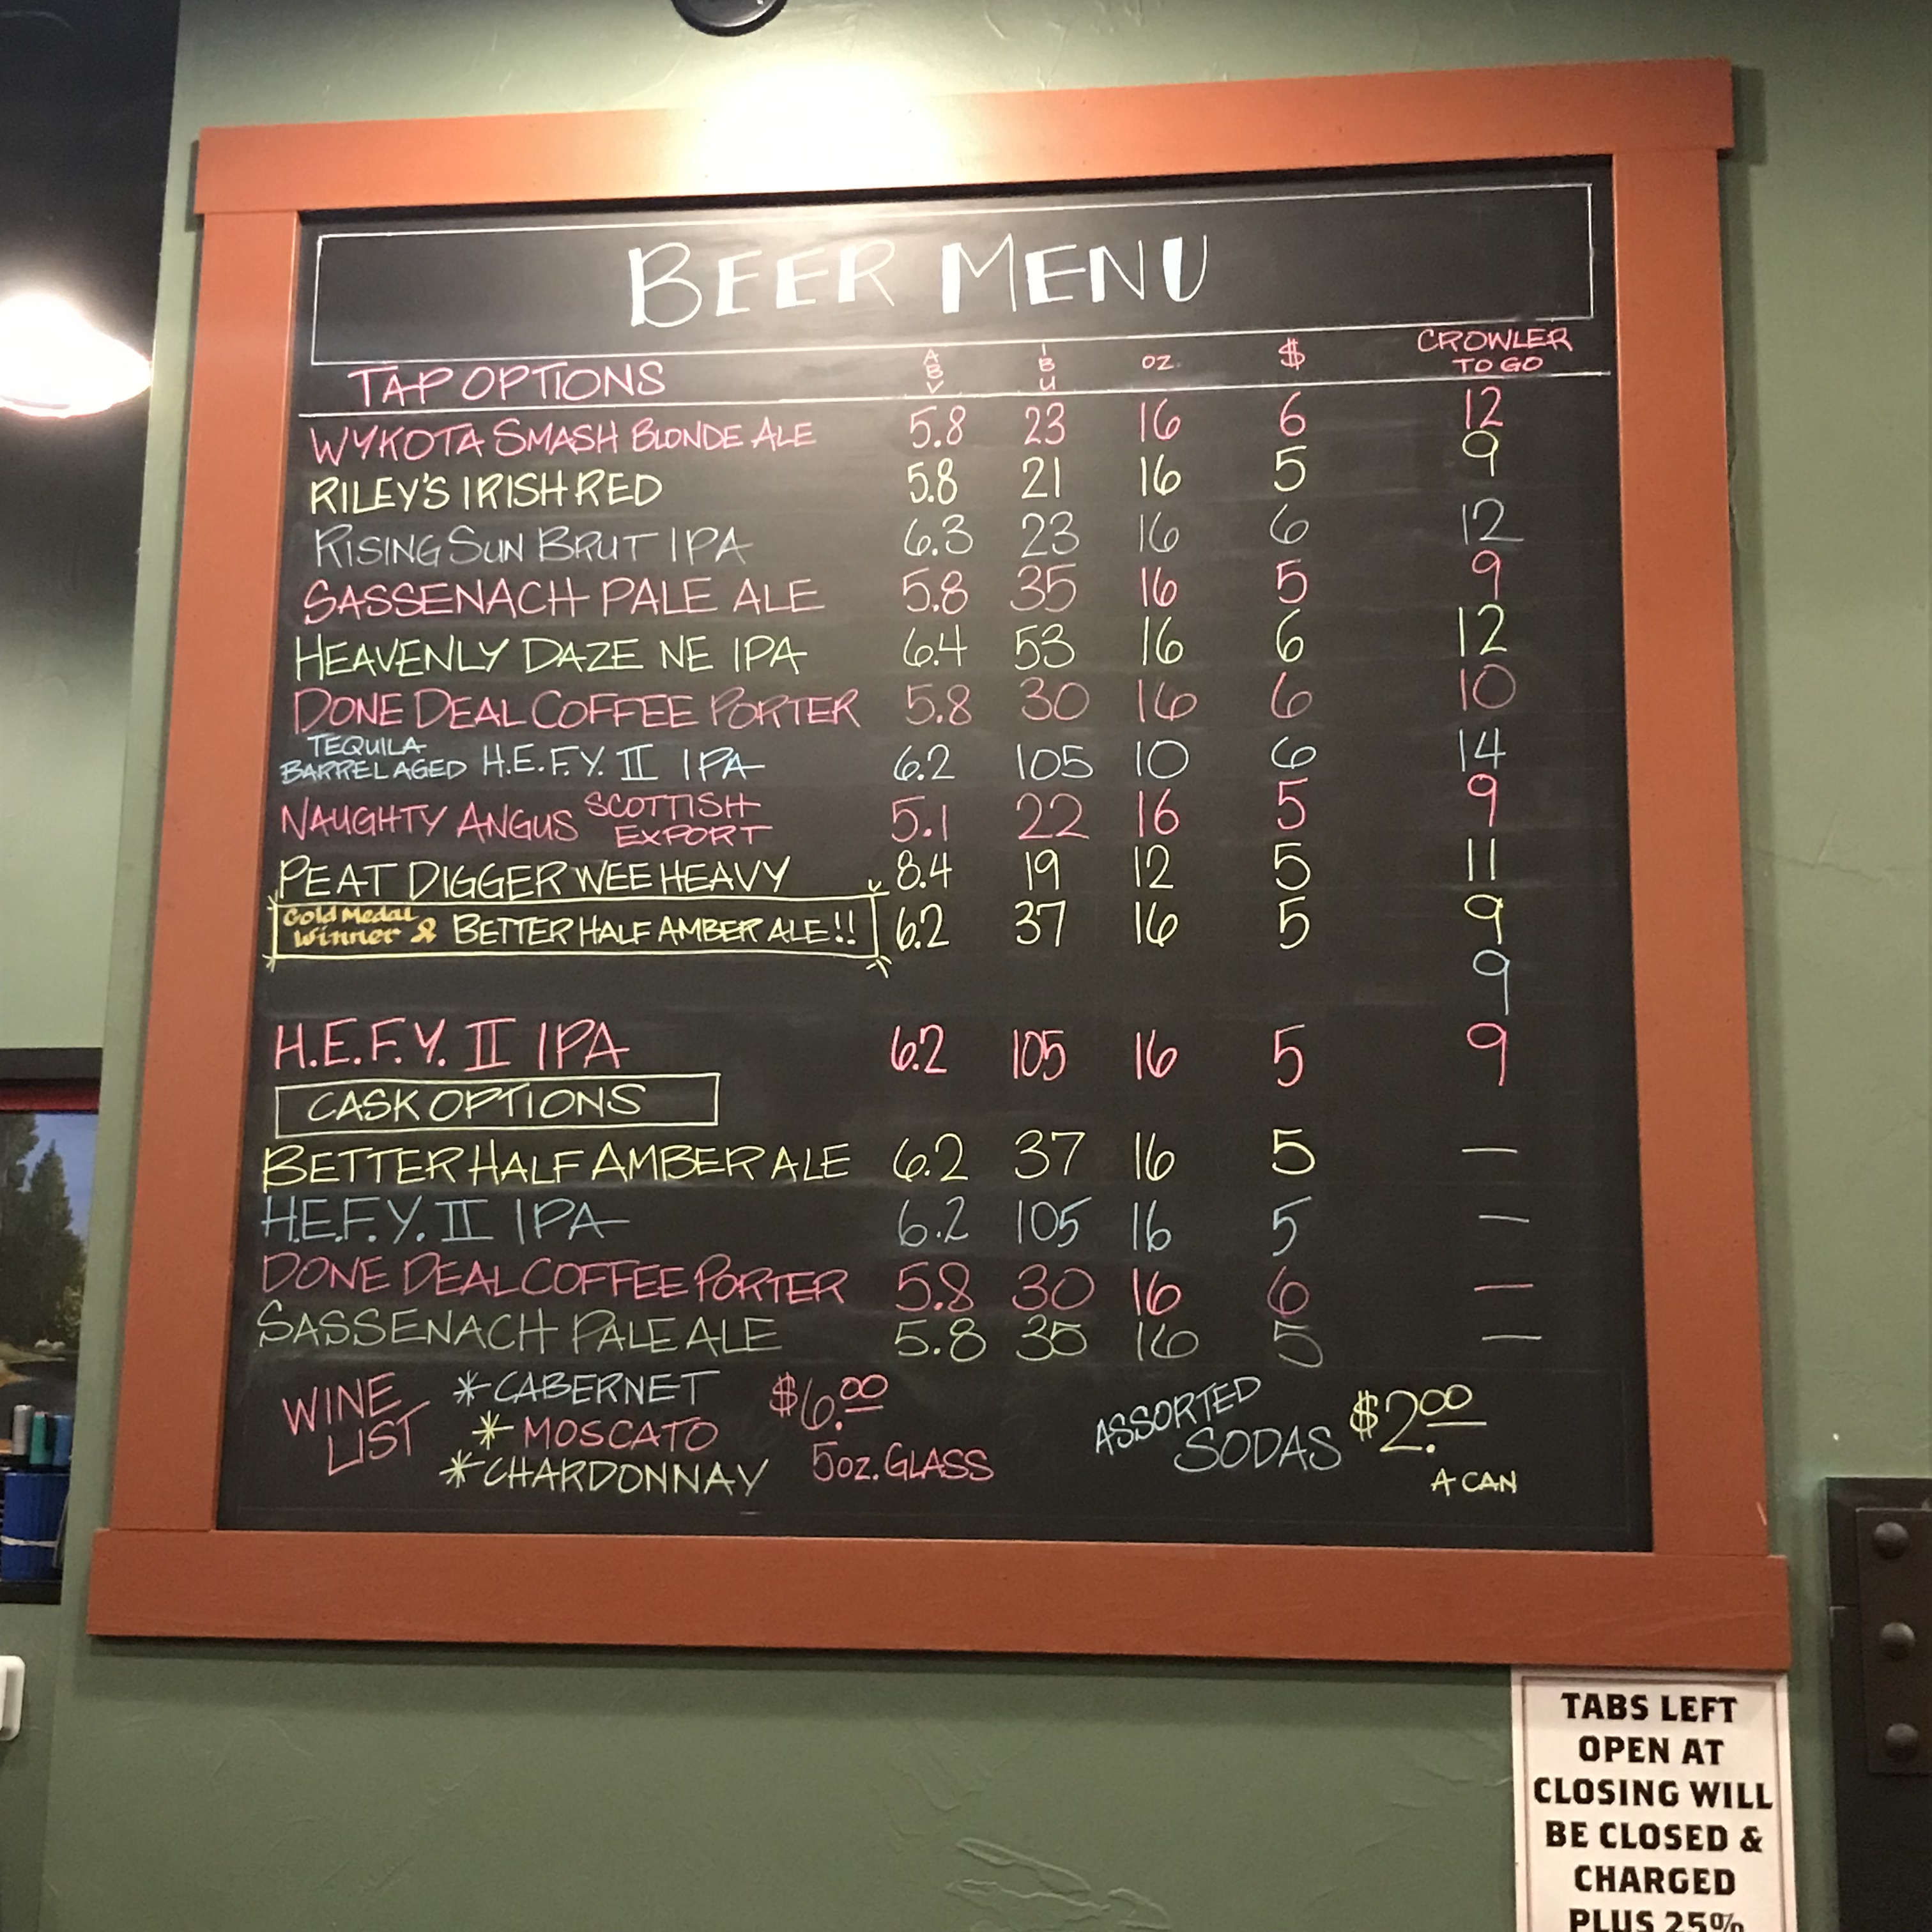 BEER MENU
TAP OPTIONS ABV IBU OZ. $ CROWLER TO GO
WYKOTA SMASH BLONDE ALE 5.8 23 16 6 12
RILEY'S IRISH RED 5.8 21 16 5 9
RISING SUN BRUT IPA 6.3 23 16 6 12
SASSENACH PALE ALE 5.8 35 16 5 9
HEAVENLY DAZE NE IPA 6.4 53 16 6 12
DONE DEAL COFFEE PORTER 5.8 30 16 6 10
TEQUILA BARREL AGED H.E.F.Y. II IPA 6.2 105 10 6 14
NAUGHTY ANGUS SCOTTISH EXPORT 5.1 22 16 5 9
PEAT DIGGER WEE HEAVY 8.4 19 12 5 11
Gold Medal Winner BETTER HALF AMBER ALE!! 6.2 37 16 5 9
9
H.E.F.Y. II IPA 6.2 105 16 5 9
CASK OPTIONS
BETTER HALF AMBER ALE 6.2 37 16 5 —
H.E.F.Y. II IPA 6.2 105 16 5 —
DONE DEAL COFFEE PORTER 5.8 30 16 6 —
SASSENACH PALE ALE 5.8 35 16 5 —
WINE LIST
*CABERNET
*MOSCATO
*CHARDONNAY
$6.00
5oz. GLASS
ASSORTED SODAS $2.00
A CAN
TABS LEFT
OPEN AT
CLOSING WILL
BE CLOSED &
CHARGED
PLUS 25%